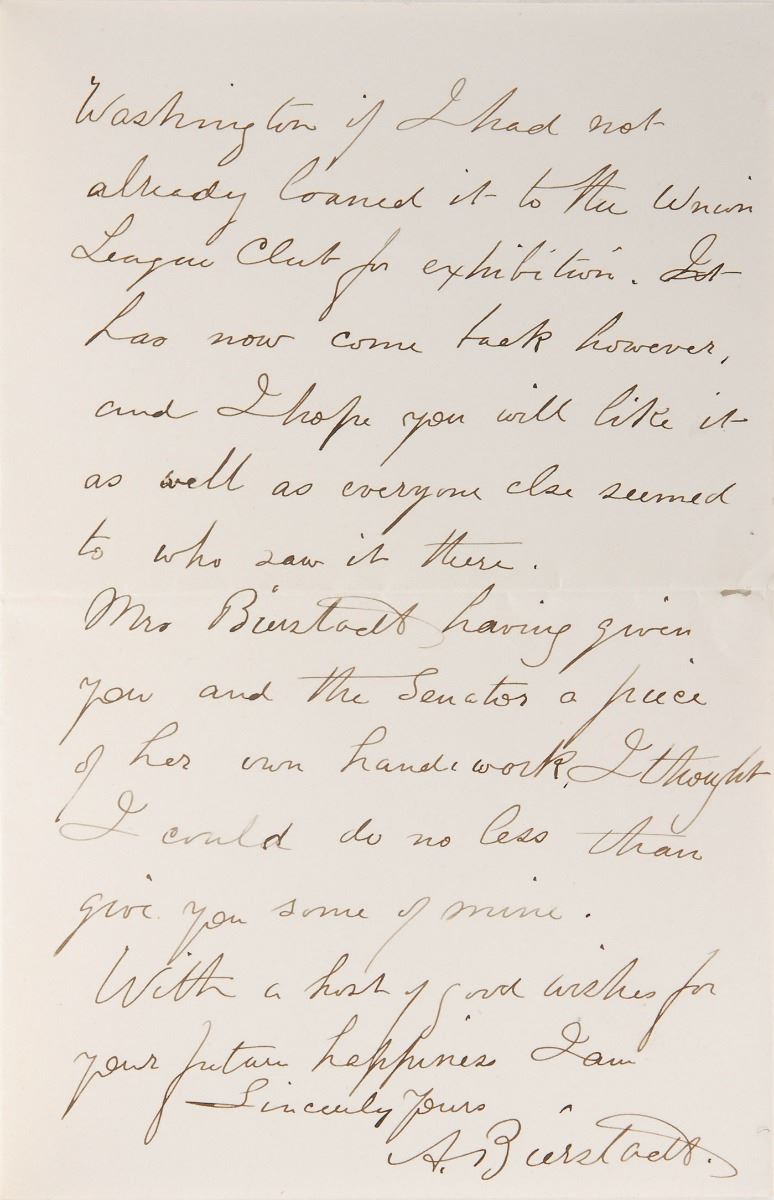 Washington if I had not
already loaned it to the Union
League Club for exhibition. It
has now come back however,
and I hope you will like it
as well as everyone else seemed
to who saw it there.
Mrs Bierstadt having given
you and the Senator a piece
of her own handiwork, I thought
I could do no less than
give you some of mine.
With a host of good wishes for
your future happiness I am
Sincerely Yours
A. Bierstadt.